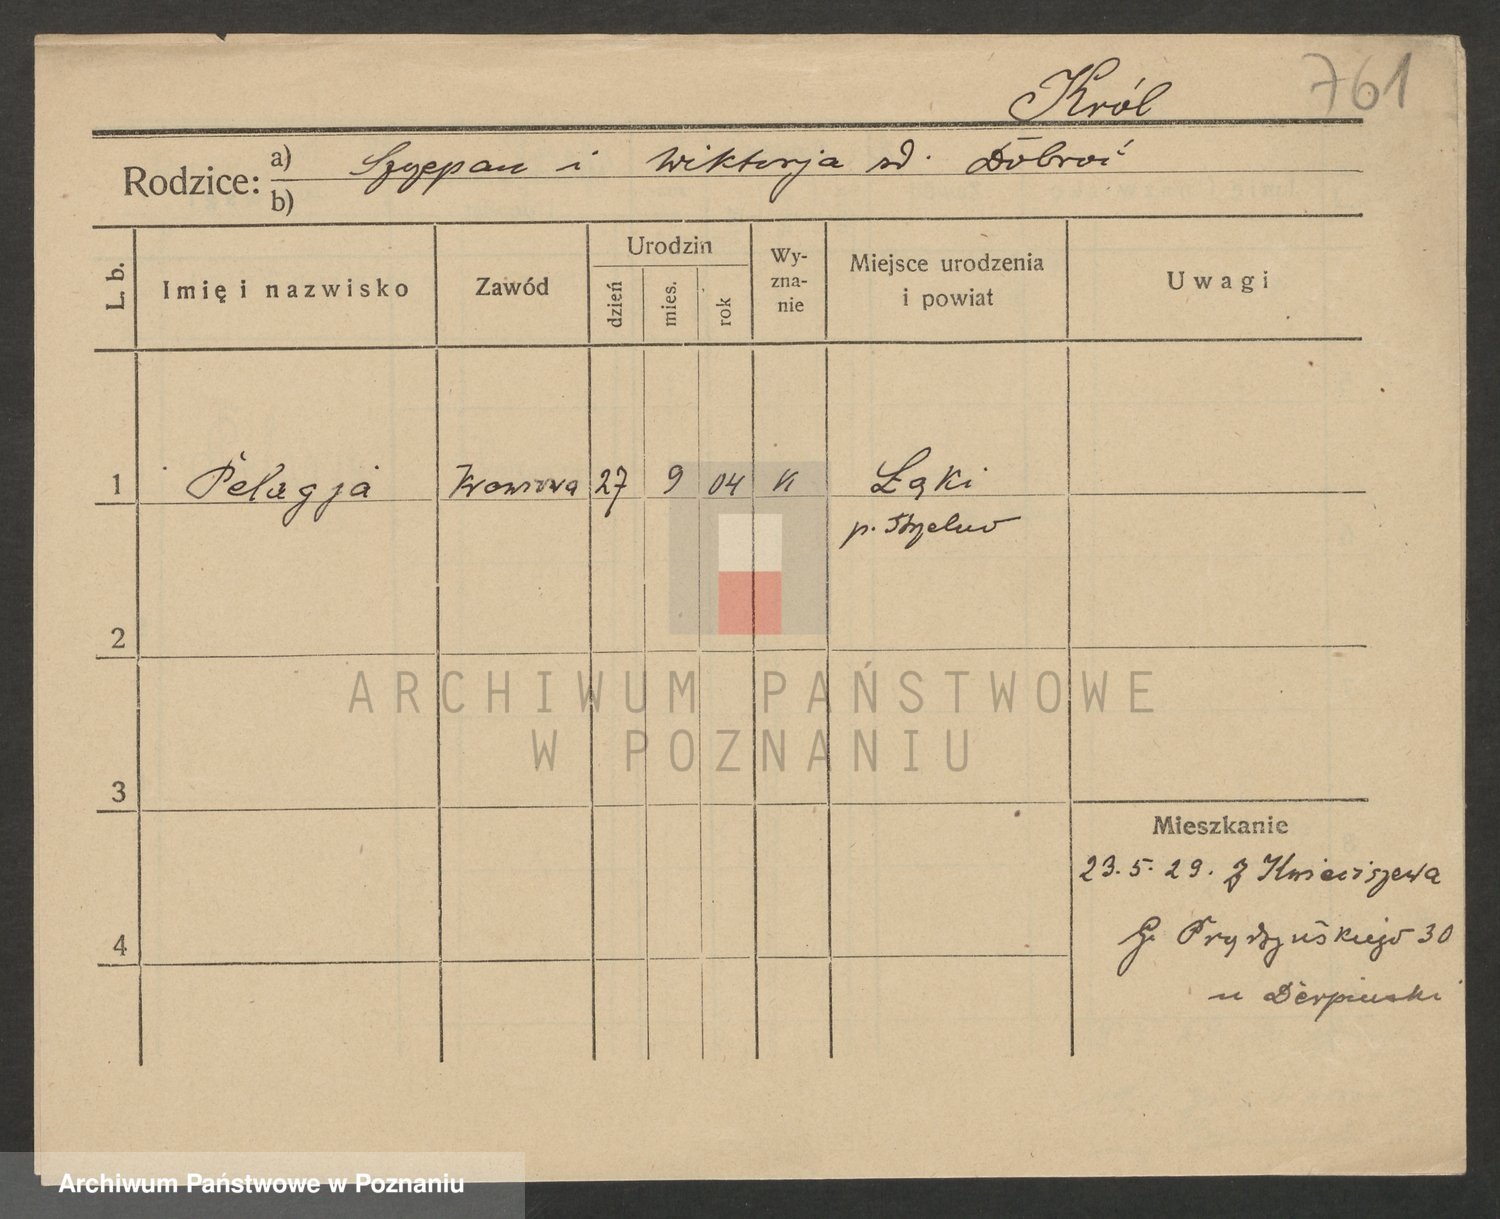 761
Król
Rodzice: a) Szczepan i Wiktorja
b)
L. b.
Imię i nazwisko
Zawód
Urodzin
dzień
mies.
rok
Wy-
zna-
nie
Miejsce urodzenia
i powiat
Uwagi
1 Pelagja 27 9 04 k Łąki
p.
2
3
4
Mieszkanie
23.5.29. z Kwieciszewa
G. Prądzyńskiego 30
u Derpiński
ARCHIWUM PAŃSTWOWE
W POZNANIU
Archiwum Państwowe w Poznaniu